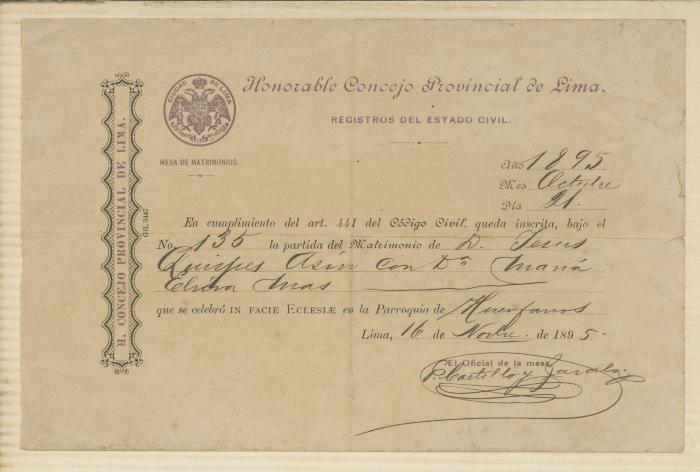 Honorable Concejo Provincial de Lima.
CIUDAD DE LIMA
REGISTROS DEL ESTADO CIVIL.
MESA DE MATRIMONIOS.
H. CONCEJO PROVINCIAL DE LIMA.
Gil 3147
Año 1895
Mes Octubre
Día 21.
En cumplimiento del art. 441 del Código Civil, queda inscrita, bajo el
No. 135 la partida del Matrimonio de D. Jesus
Quispes Asin con Da. Maria
Elvira Mas
que se celebró IN FACIE ECLESIÆ en la Parroquia de Huerfanos
Lima, 16 de Novbre. de 1895.
El Oficial de la mesa
P. Castillo y